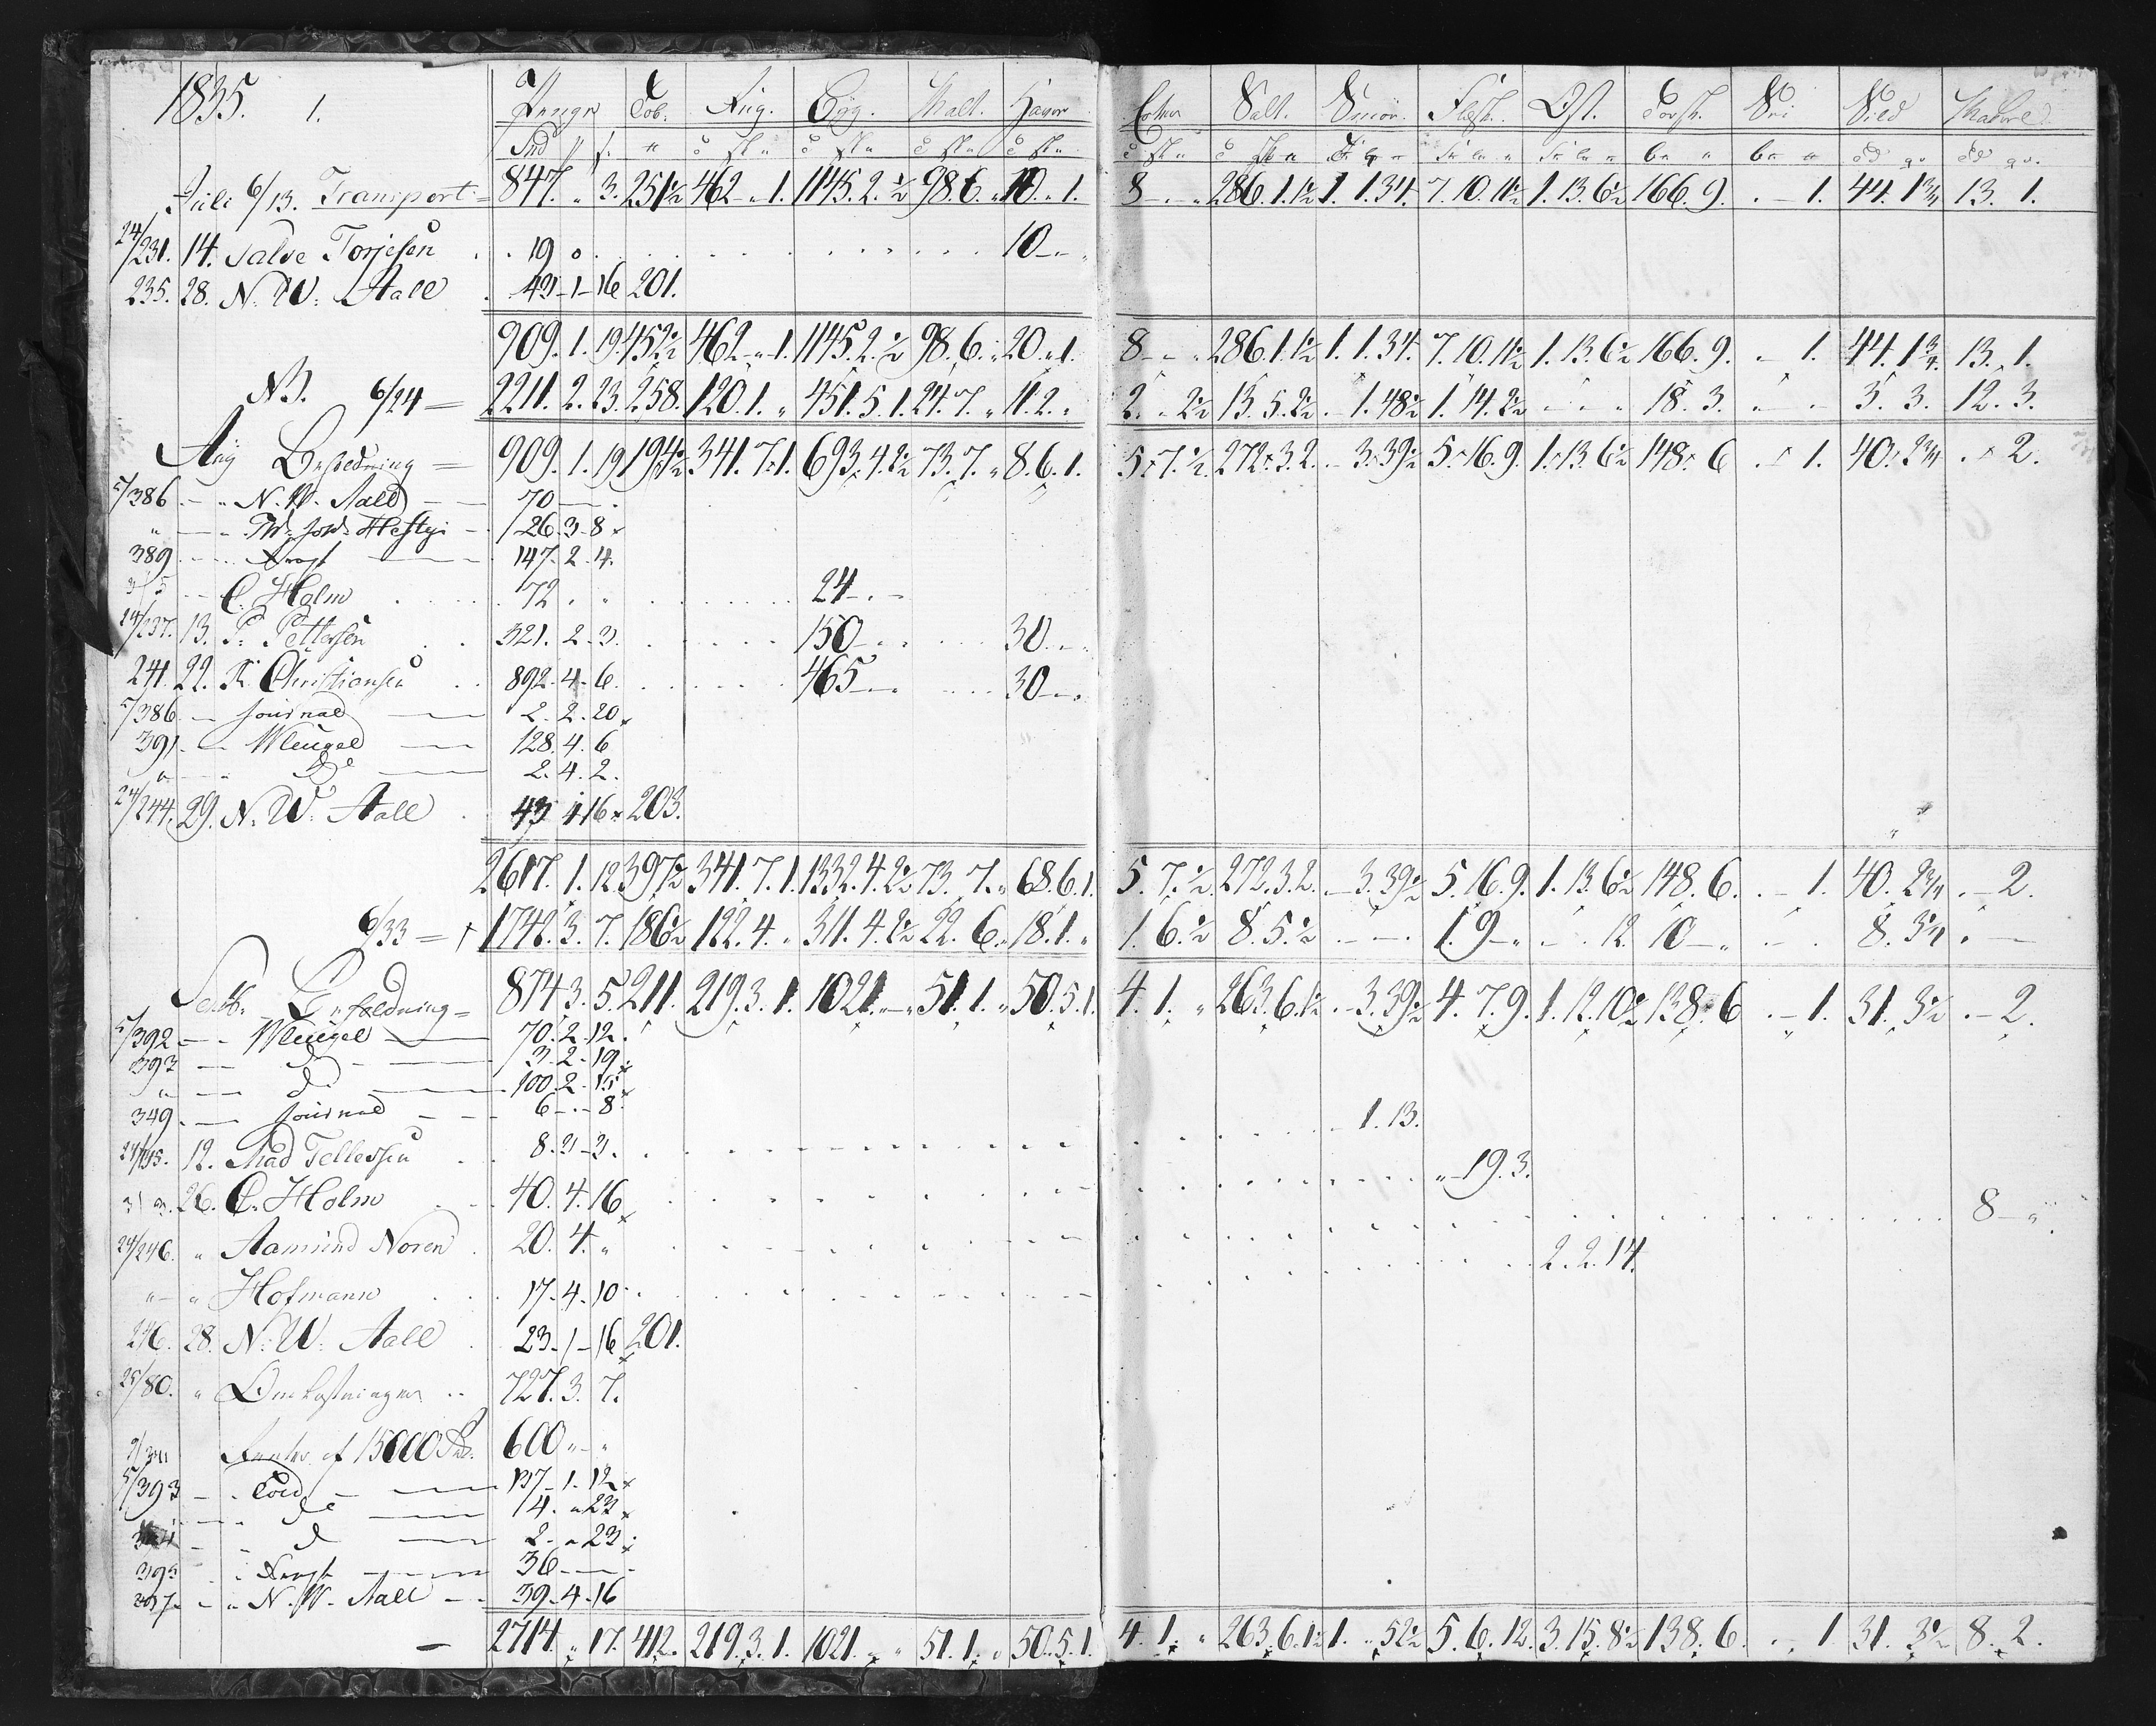 1835. 1. Penge Tob. Rug. Byg. Malt. Havre Salt. Smör. Flesk. Ost. Torsk. Sei Sild Makrel
Juli 6/13. Transport = 847. „ 3. 251½ 462 „ 1. 1145. 2. ½ 98. 6. „ 10. „ 1. 8 - „ 286. 1. 1½ 1. 1. 34. 7. 10. 11½ 1. 13. 6½ 166. 9. . - 1. 44. 1¾ 13. 1.
24/231. 14. Salve Torjesen . . 19 0 . 10 - „
235. 28. N. W. Aall . 43 - 1 - 16 201.
909. 1. 19 452½ 462 - „ 1. 1145. 2. ½ 98. 6. „ 20. „ 1. 8 - „ 286. 1. 1½ 1. 1. 34. 7. 10. 11½ 1. 13. 6½ 166. 9. „ - 1. 44. 1¾. 13. 1.
NB. 6/24 = 2211. 2. 23. 258. 120. 1. „ 451. 5. 1. 24. 7. „ 11. 2. „ 2. „ 2½ 13. 5. 2½ - 1. 48½ 1. 14. 2½ - „ - „ 18. 3. „ - 3. 3. 12. 3.
Aug Beholdning = 909. 1. 19 194½ 341. 7. 1. 693. 4. 2½ 73. 7. „ 8. 6. 1. 5. 7. ½. 272. 3. 2. - 3. 39½ 5. 16. 9. 1. 13. 6½ 148. 6 . - 1. 40. 2¾ . - 2.
5/386 - „ N. W. Aall - - 70 - .
„ - - Hestgi - 126. 3 - 8
389 - - 147. 2. 4.
- - C. Holm . . . 72 . „ 24 - . -
24/237. 13. P. Pettersen . . 321. 2 - 3. 150 - 30 - „
241. 22. K. Christiansen . . 892. 4. 6. 465 - 30 - .
5/386 - Journal - 2. 2. 20
391 - - Wleugel - 128. 4. 6
„ - - Do - 2. 4. 2.
24/244. 29. N. W. Aall . 43 4 16 203.
2617. 1. 12. 397½ 341. 7. 1. 1332. 4. 2½ 73. 7. „ 68. 6. 1. 5. 7. ½. 272. 3. 2. - 3. 39½ 5. 16. 9. 1. 13. 6½ 148. 6. . - 1. 40. 2¾ . - 2.
6/33 = 1742. 3. 7. 186½ 122. 4. „ 311. 4. 2½ 22. 6. „ 18. 1. „ 1. 6. ½ 8. 5. ½ - - . 1. 9 - „ - . 12. 10 - „ - . 8. 3¼ . -
Septb. Beholdning = 874 3. 5. 211. 219. 3. 1. 1021. - „ 51. 1. „ 50. 5. 1. 4. 1. „ 263. 6. 1½ - 3. 39½ 4. 7. 9. 1. 12. 10½ 138. 6 . - 1. 31. 3½ . - 2.
5/392 - - Wleugel - 70. 2. 12.
393 - - do - 3. 2. 19
„ - - do - 100. 2. 15
349 - - Journal - - - 6 - . - 8
12. Mad Tellefsen . . 8. 3 - 3. 1. 13.
26. C. Holm . . 40. 4. 16 „ 19. 3.
24/246. „ Aamund Noren . 20. 4. „ 8 - „
„ - „ Hofmann . . . 17. 4. 10 2. 2. 14.
246. 28. N. W. Aall . 23. 1 - 16 201.
25/80. „ Omkostninger . . 727. 3. 7.
Renter af 15000 Spd. 600 „ - „
5/393 - . Told - 137 - 1. 12
- - do - 14. „ 23
- - d - 2. „ 23
395 - 36 - - .
397 - „ N. W. Aall - - . 39. 4. 16
- 2714. „ 17. 412. 219. 3. 1. 1021. „ „ 51. 1. „ 50. 5. 1. 4. 1. „ 263. 6. 1½ 1. „ 52½ 5. 6. 12. 3. 15. 8½ 138. 6. „ „ 1. 31. 3½ 8. 2.